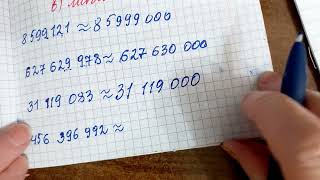 8 599 121 ≈ 8 5999 000
627 629 978 ≈ 627 630 000
31 119 033 ≈ 31 119 000
456 396 992 ≈